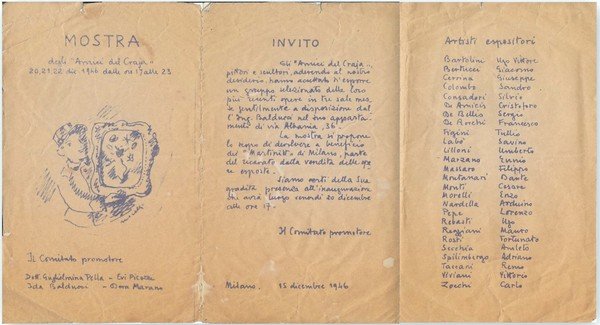 MOSTRA
degli "Amici del Craja"
20, 21, 22 dic 1946 dalle ore 17 alle 23
Il Comitato promotore
Dott. Guglielmina Pella - Evi
Ida Balducci - Dora Marano
INVITO
Gli "Amici del Craja",
pittori e scultori, aderendo al nostro
desiderio hanno accettato d'esporre
un gruppo selezionato delle loro
più recenti opere in tre sale mes-
se gentilmente a disposizione dal
l'Ing. Balducci nel suo apparta-
mento di via Albania, 36.
La mostra si propone
lo scopo di devolvere a beneficio
dei "Martinitt" di Milano, parte
del ricavato della vendita delle ope
re esposte.
Siamo certi della Sua
gradita presenza all'inaugurazione
che avrà luogo venerdì 20 dicembre
alle ore 17.
Il Comitato promotore
Milano. 15 dicembre 1946
Artisti espositori
Bartolini Ugo Vittore
Bertucci Giacomo
Cerrina Giuseppe
Colombo Sandro
Consadori Silvio
De Amicis Cristoforo
De Bellis Sergio
De Rocchi Francesco
Figini Tullio
Labò Savino
Lilloni Umberto
Marzano Ennio
Massaro Filippo
Montanari Dante
Monti Cesare
Morelli Enzo
Nardella Arduino
Pepe Lorenzo
Rebasti Ugo
Reggiani Mauro
Rosti Fortunato
Secchia Amleto
Spilimbergo Adriano
Taccani Remo
Viviani Vittorio
Zocchi Carlo